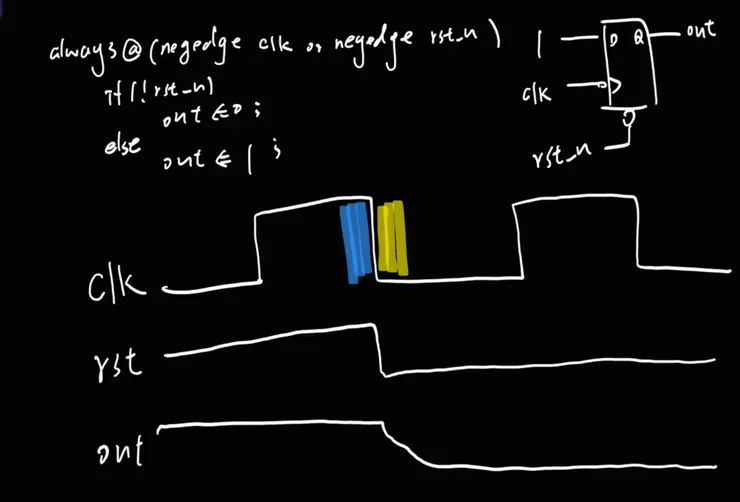 always@(negedge clk or negedge rst_n)
if(!rst_n)
out <= 0;
else
out <= 1;
1 D Q out
clk
rst_n
clk
rst
out